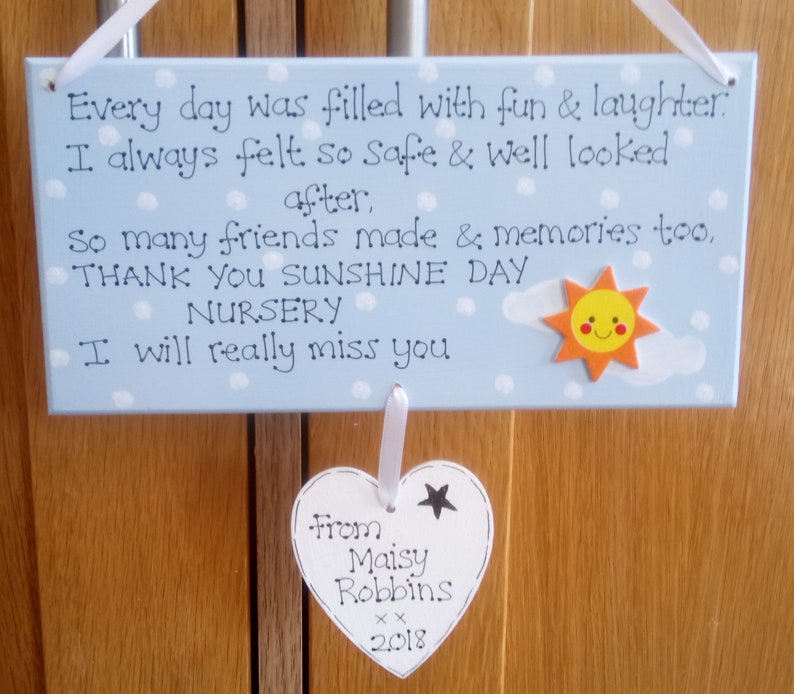 Every day was filled with fun & laughter.
I always felt so safe & well looked
after,
So many friends made & memories too,
THANK YOU SUNSHINE DAY
NURSERY
I will really miss you
From
Maisy
Robbins
x x
2018